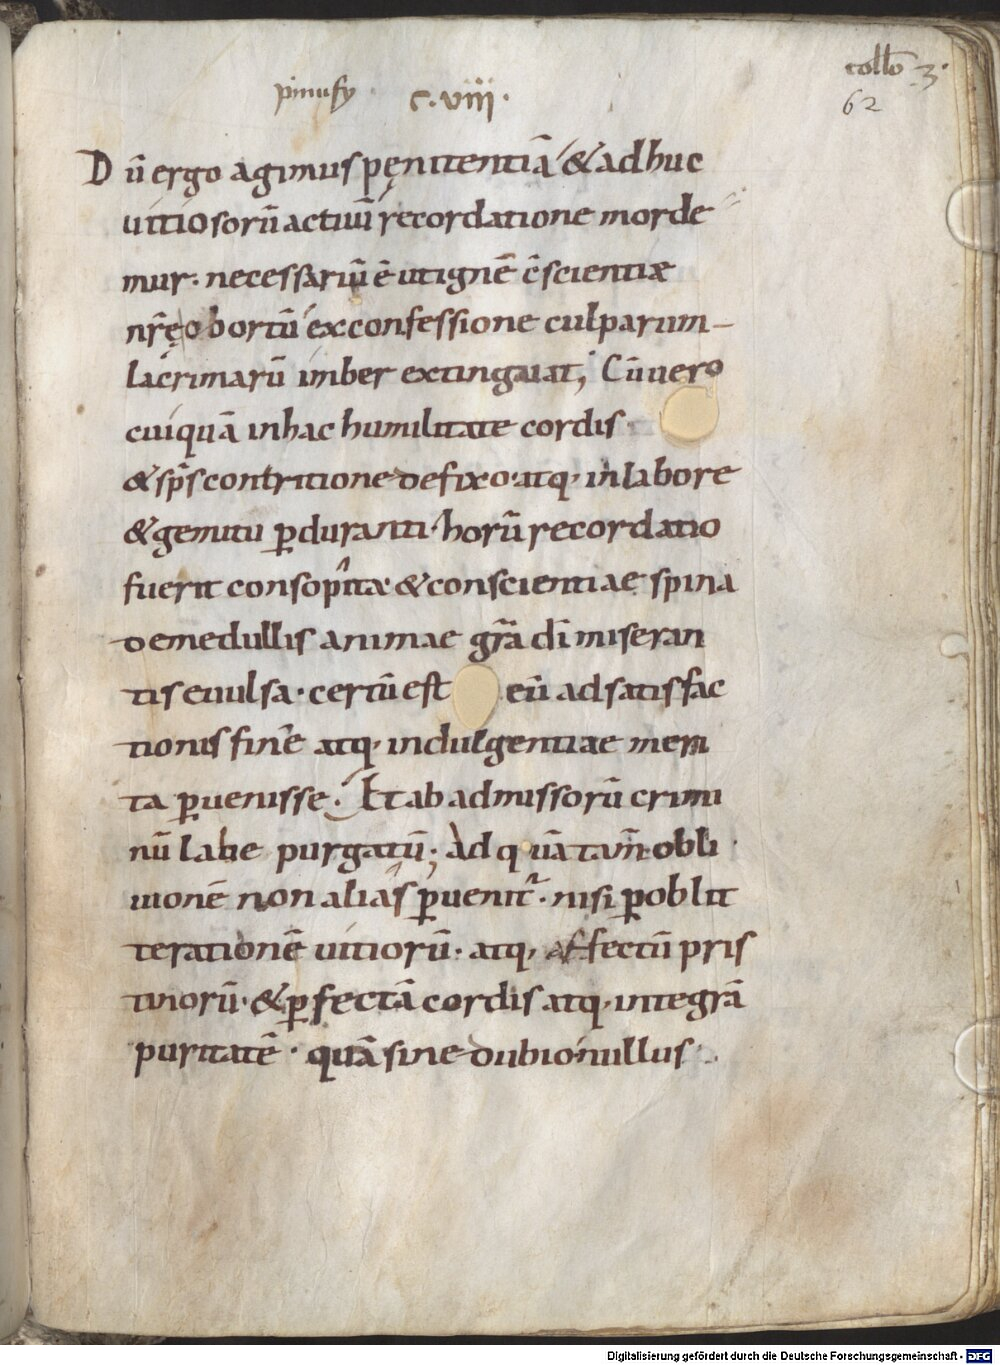 collo 3.
62
pinufy c. viiii.
Dū ergo agimus pęnitentiā & adhuc
uitiosorū actuū recordatione morde
mur. necessariū ē ut ignē c̄scientiae
nr̄ę obortū ex confessione culparum
lacrimarū imber extinguat; Cū uero
cuiquā in hac humilitate cordis
& sp̄s contritione defixo. atq; in labore
& gemitu ꝑduranti. horū recordatio
fuerit consopita & conscientiae spina
de medullis animae gr̄a dī miseran
tis euulsa. certū est eū ad satisfac
tionis finē atq; indulgentiae meri
ta ꝑuenisse. Et ab admissorū crimi
nū labe purgatū; Ad quā tam̄ obli
uionē non alias ꝑuenit᷑. nisi ꝑ oblit
terationē uitiorū. atq; affectū pris
tinorū. & ꝑfectā cordis atq; integrā
puritatē. quā sine dubio nullus
Digitalisierung gefördert durch die Deutsche Forschungsgemeinschaft - DFG